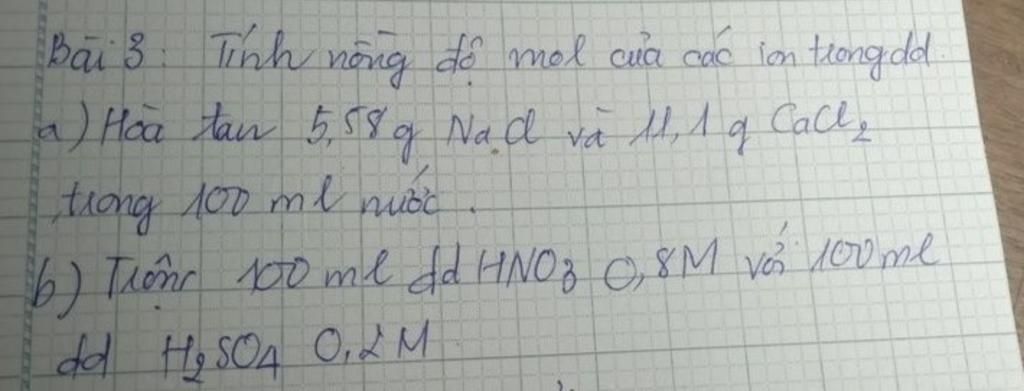 Bài 3: Tính nồng độ mol của các ion trong dd.
a) Hòa tan 5,58g NaCl và 11,1g CaCl₂
trong 100 ml nước.
b) Trộn 100 ml dd HNO3 0,8M với 100ml
dd H₂SO4 0,2M